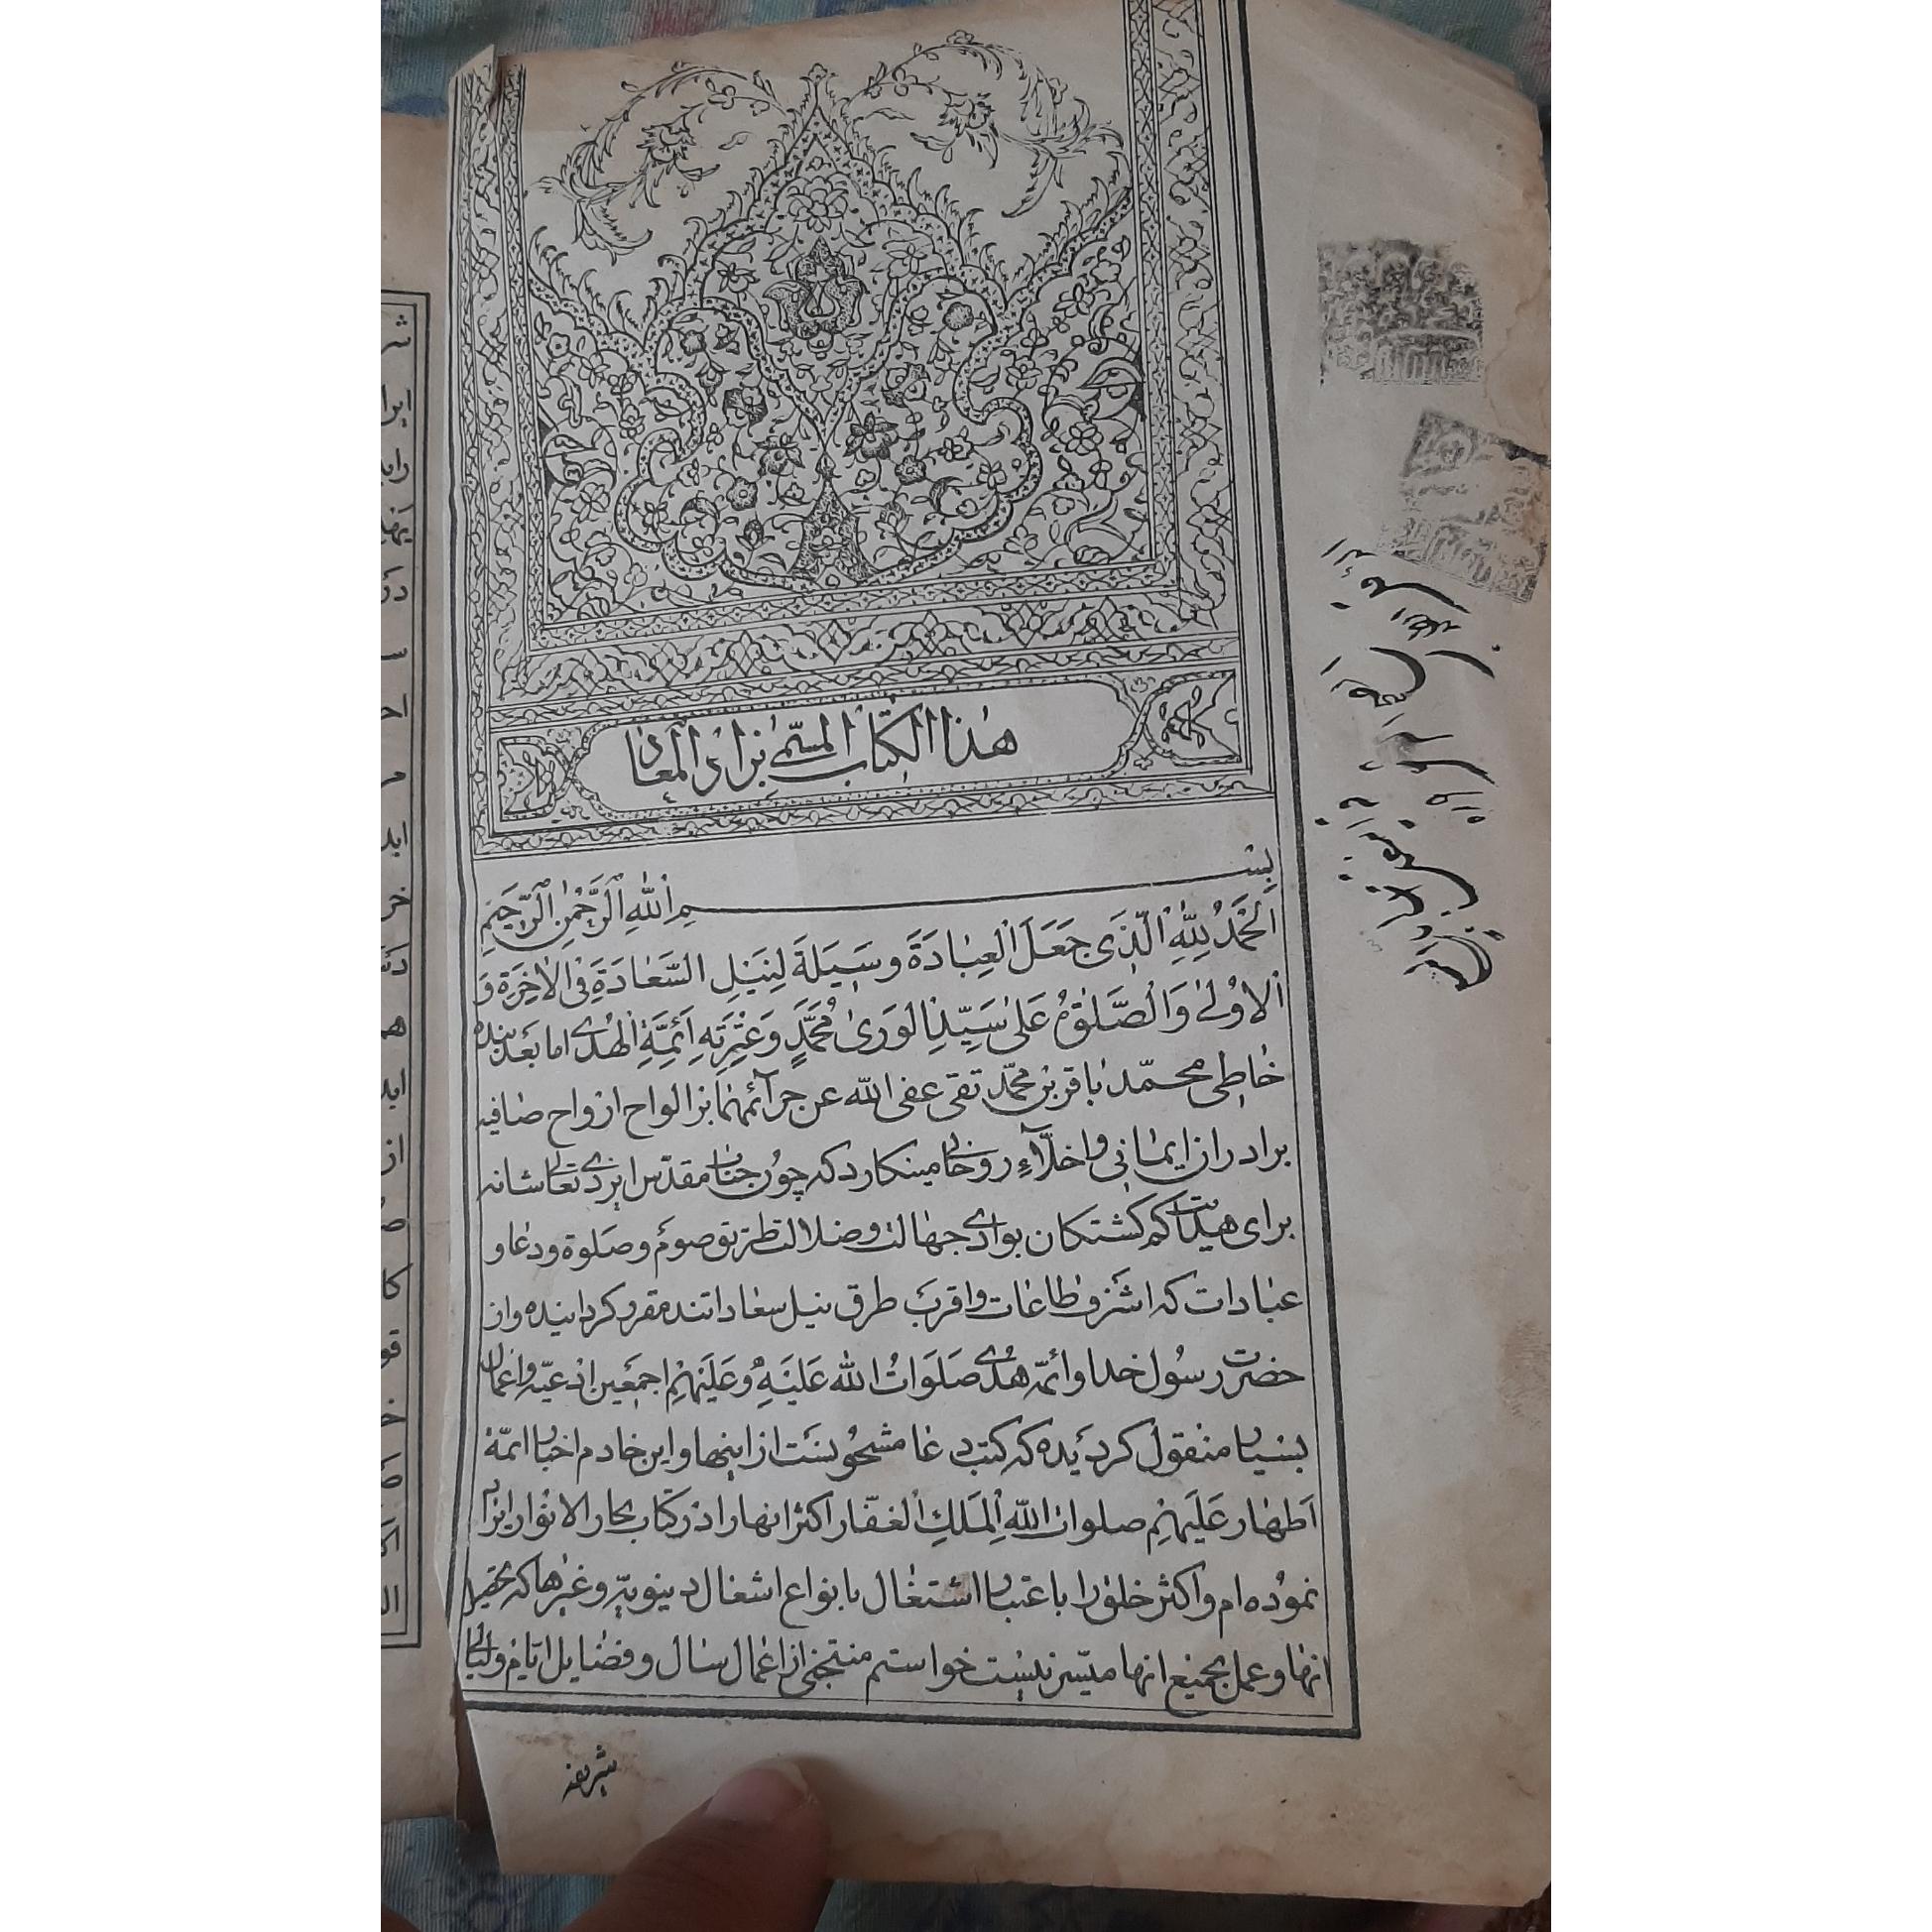 هذا الکتاب المسمی بزاد المعاد
بِسْمِ اللهِ الرَّحْمٰنِ الرَّحِیمِ
اَلْحَمْدُ لِلّٰهِ الَّذی جَعَلَ الْعِبٰادَةَ وَسیلَةً لِنَیْلِ السَّعٰادَةِ فِی الْاٰخِرَةِ وَ
الْاُوْلیٰ وَالصَّلٰوةُ عَلیٰ سَیِّدِ الْوَریٰ مُحَمَّدٍ وَعِتْرَتِهِ اَئِمَّةِ الْهُدیٰ اما بَعْد بنده
خاطی محمّد باقر بن محمّد تقی عفی الله عن جرآئمهما بر الواح ارواح صافیه
برادران ایمانی واخلّآءِ روحانی مینکارد که چون جناب مقدّس ایزدی تعالی شانه
برای هدایت کم کشتکان بوادی جهالت وضلالت طریق صوم وصلوة ودعا و
عبادات که اشرف طاعات واقرب طرق نیل سعاداتند مقرر کردانیده واز
حضرت رسول خدا وائمّه هدی صَلَوَاتُ الله عَلَیْهِ وَعَلَیْهِمْ اجمَعین ادعیه واعمال
بسیار منقول کردیده که کتب دعا مشحونست از اینها واین خادم اخبار ائمّهٔ
اَطهار عَلَیْهِمْ صلوات اللهِ الْمَلِكِ الْغَفّار اکثر انها را در کتاب بحار الانوار ایراد
نموده ام واکثر خلق را باعتبار اشتغال بانواع اشغال دینویه وغیرها که تحصیل
انها وعمل بجمیع انها میسر نیست خواستم منتخبی از اعمال سال وفضایل ایام ولیالی
شریفه